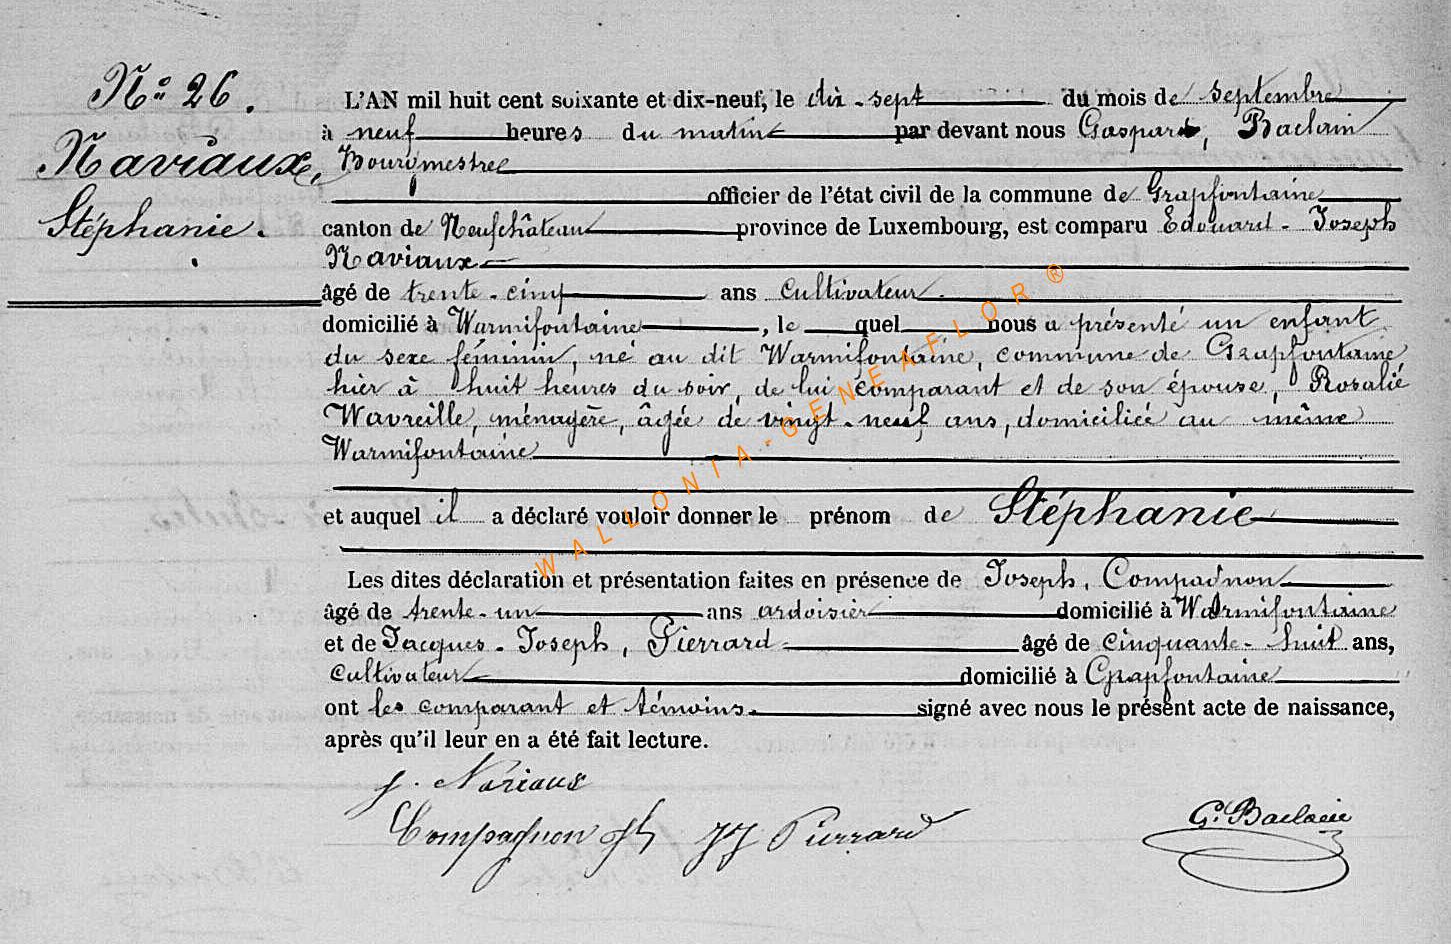 N° 26.
Naviaux,
Stéphanie.
L'AN mil huit cent soixante et dix-neuf, le dix-sept du mois de septembre
à neuf heures du matin par devant nous Gaspard, Baclain
Bourgmestre
officier de l'état civil de la commune de Grapfontaine
canton de Neufchâteau province de Luxembourg, est comparu Edouard-Joseph
Naviaux
âgé de trente-cinq ans cultivateur
domicilié à Warmifontaine, le quel nous a présenté un enfant
du sexe féminin, né au dit Warmifontaine, commune de Grapfontaine
hier à huit heures du soir, de lui comparant et de son épouse, Rosalie
Wavreille, ménagère, âgée de vingt-neuf ans, domiciliée au même
Warmifontaine
et auquel il a déclaré vouloir donner le prénom de Stéphanie
Les dites déclaration et présentation faites en présence de Joseph, Compagnon
âgé de trente-un ans ardoisier domicilié à Warmifontaine
et de Jacques-Joseph, Pierrard âgé de cinquante-huit ans,
cultivateur domicilié à Grapfontaine
ont les comparant et témoins signé avec nous le présent acte de naissance,
après qu'il leur en a été fait lecture.
J. Naviaux
Compagnon Jh JJ Pierrard G. Baclain
WALLONIA-GENEAFLOR ®